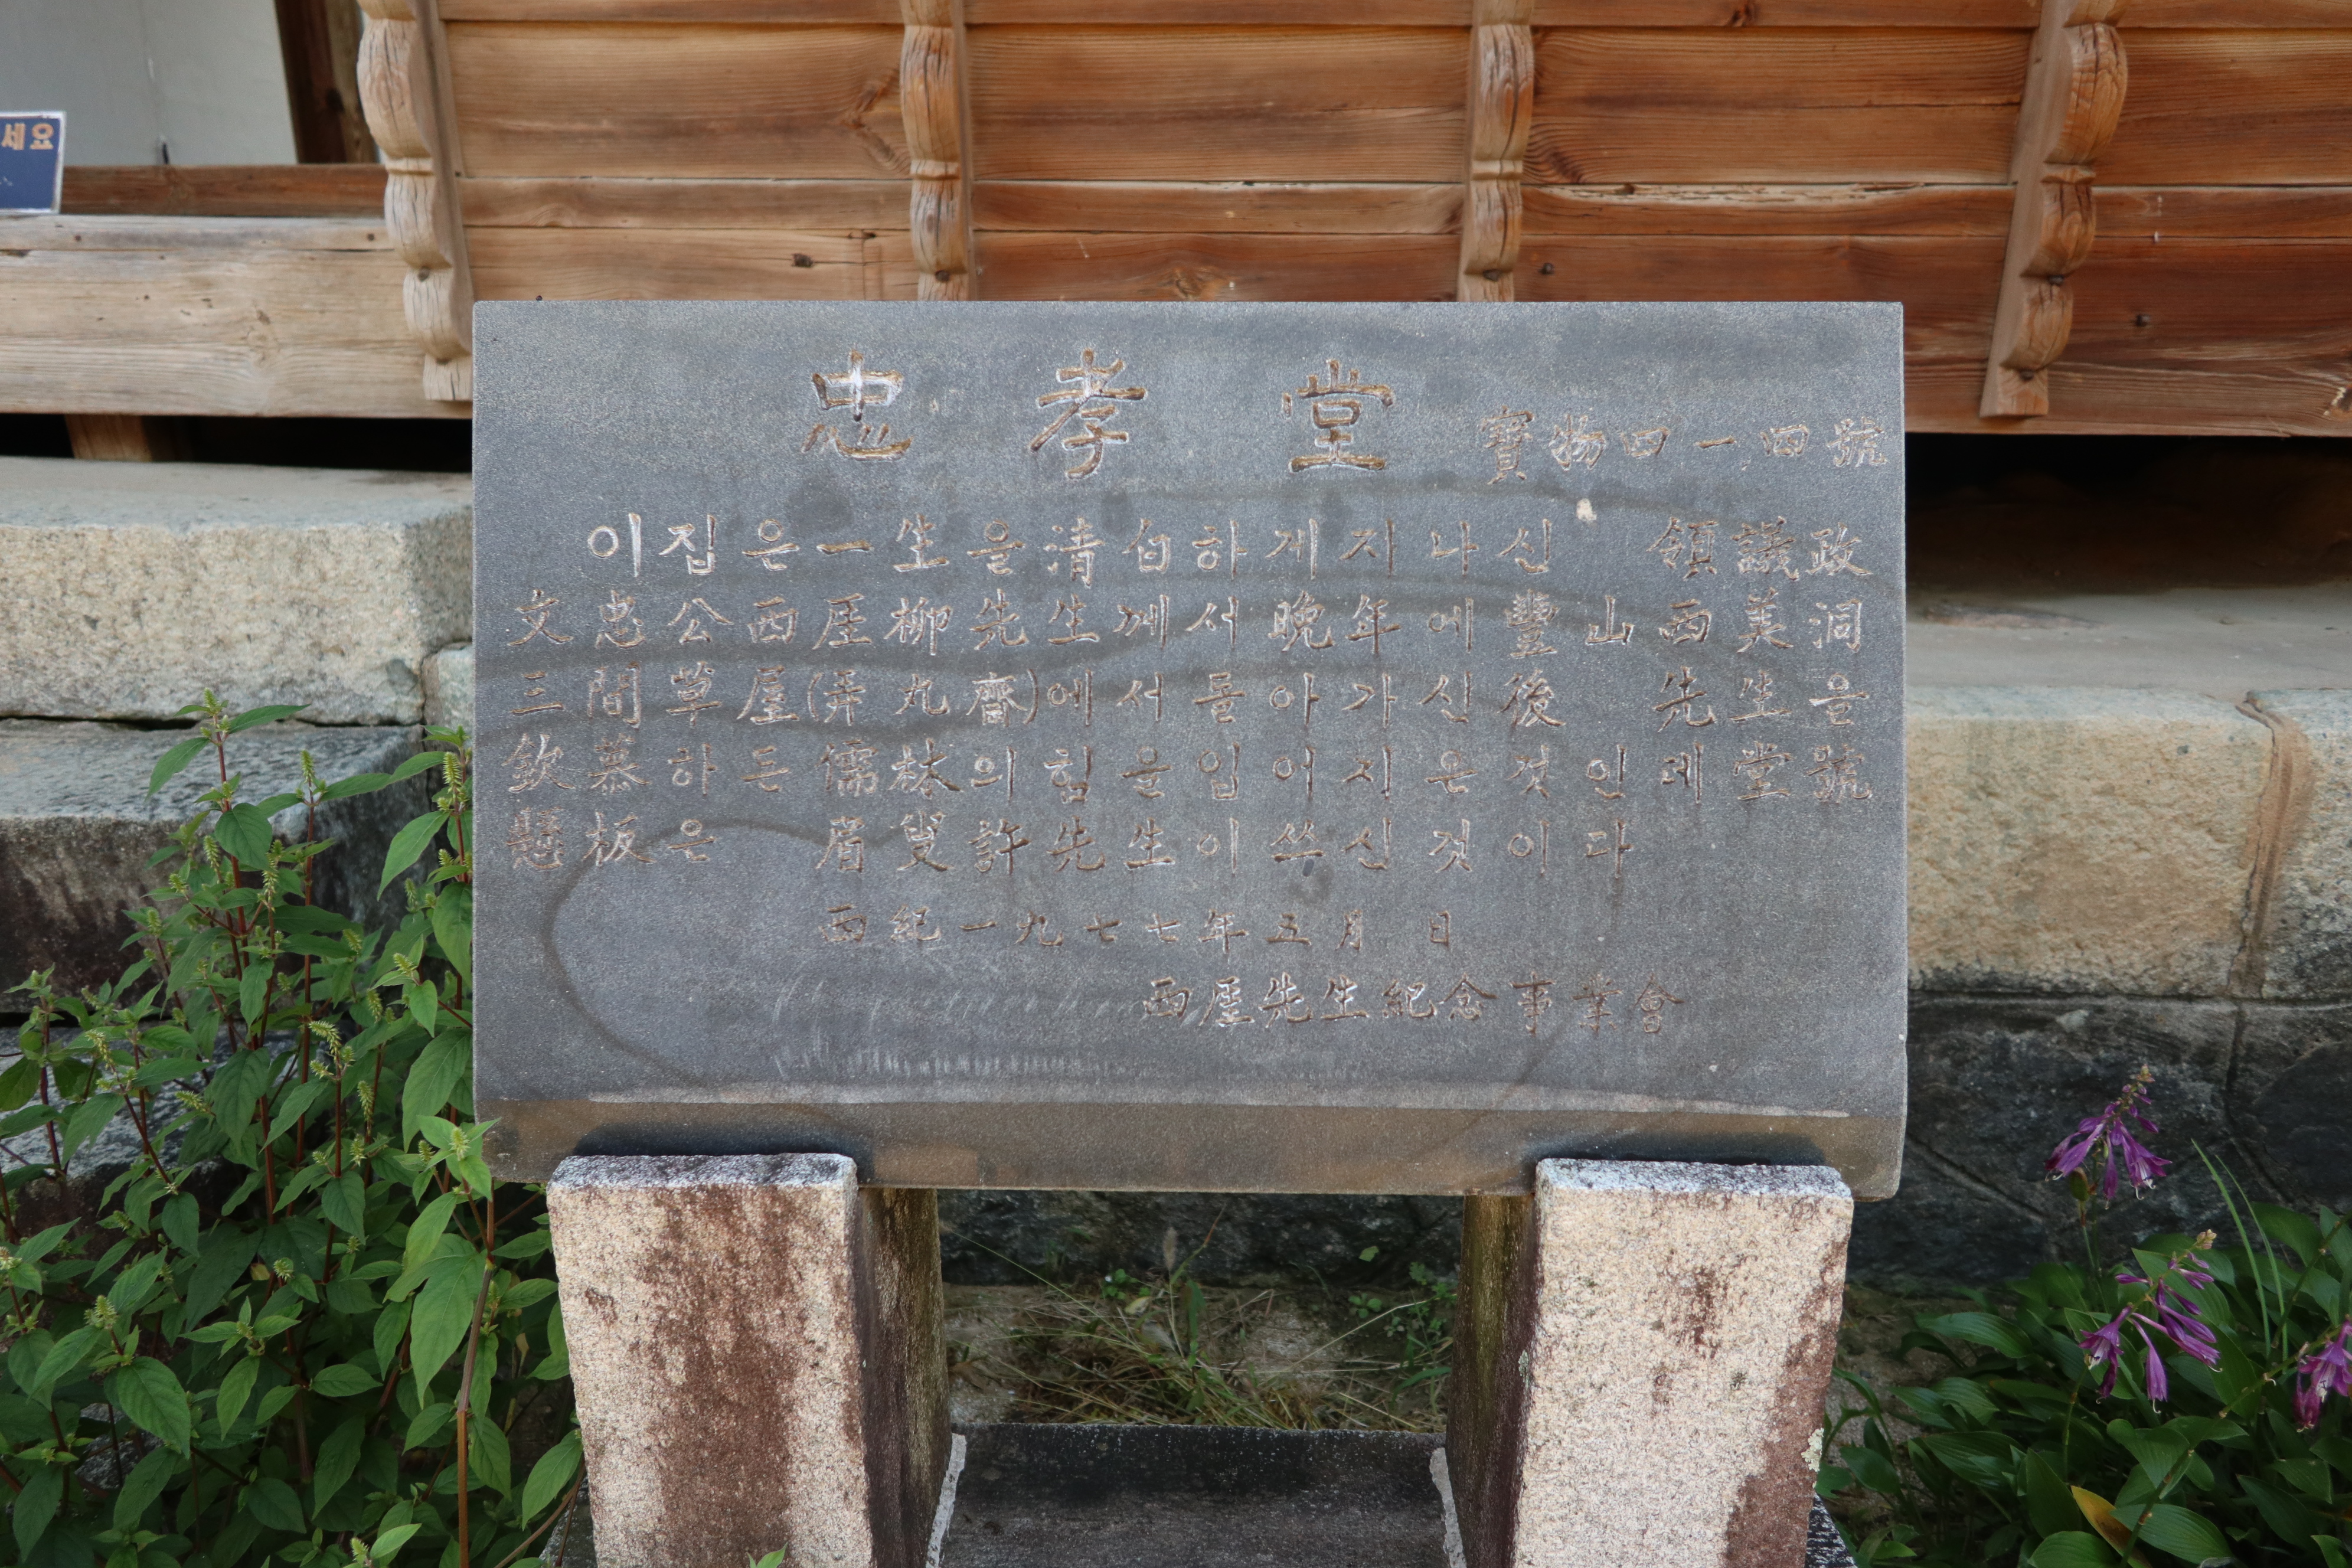 세요
忠孝堂 寶物四一四號
이집은一生을淸白하게지나신 領議政
文忠公西厓柳先生께서晩年에豐山西美洞
三間草屋(弄丸齋)에서돌아가신後 先生을
欽慕하든儒林의힘을입어지은것인데堂號
懸板은 眉叟許先生이쓰신것이다
西紀一九七七年五月 日
西厓先生紀念事業會